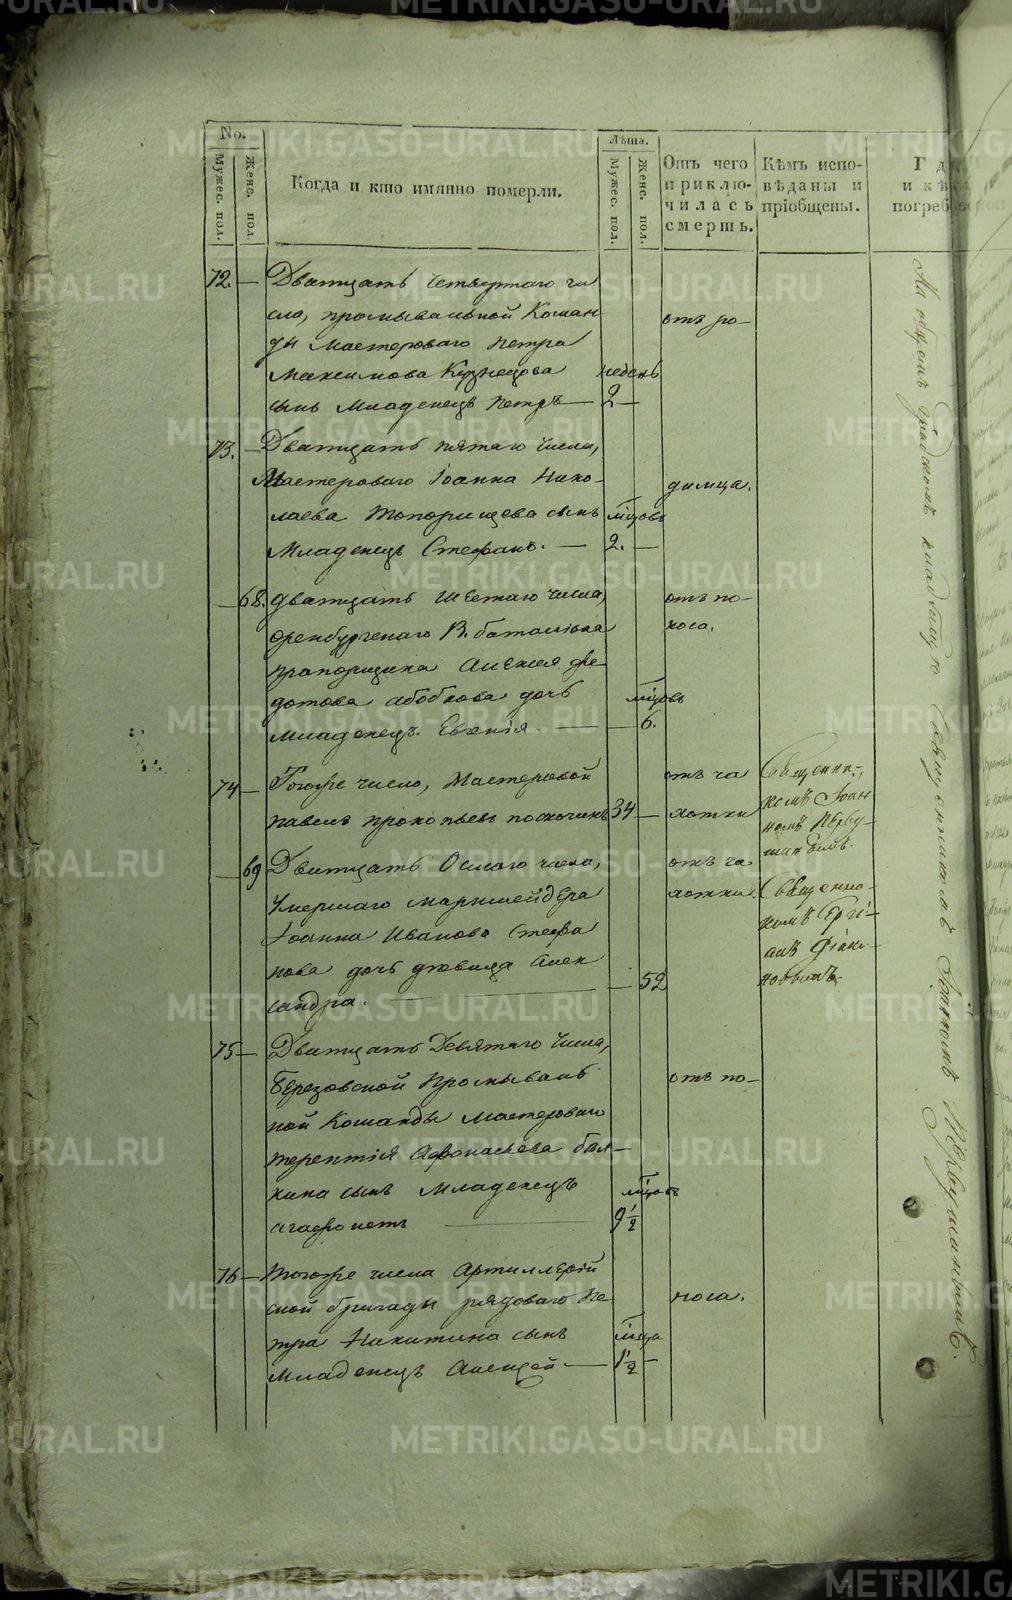 No.
Мужес. пол.
Женс. пол.
Когда и кто имянно померли.
Лѣта.
Мужес. пол.
Женс. пол.
Отъ чего
приклю-
чилась
смерть.
Кѣмъ испо-
вѣданы и
пріобщены.
погреб
72. — Дватцать четвертаго чи
сла, промывальной Коман
ды Мастероваго Петра
Максимова Кузнецова
сынъ Младенецъ Петръ —
недель
2 —
отъ ро—
73. — Дватцать пятаго числа,
Мастероваго Іоанна Нико-
лаева Топорищева сынъ
Младенецъ Стефанъ. —
мѣсцовъ
2. —
димца.
— 68. Дватцать шестаго числа,
оренбургскаго баталіона
прапорщика Алексея Фе-
дотова дочь
младенецъ Евгенія —
мѣсцовъ
— 6.
отъ по-
носа.
74 — Тогоже число, Мастеровой
павелъ прокопьевъ
34 —
отъ ча
хотки
Священни-
комъ Іоан
номъ Перву-
шинымъ.
— 69 Дватцать Осмаго числа,
Умершаго маркшейдера
Іоанна Иванова Стефа
нова дочь девица Алек
сандра. —
— 52
отъ ча
хотки.
Священно-
комъ
новымъ
75 — Дватцать Девятаго числа,
Березовской Промываль
ной Команды мастероваго
терентія Афонасьева
сынъ Младенецъ
—
мѣсцовъ
9 1/2
отъ по-
76 — тогоже числа Артиллерій
ской бригады рядоваго Пе
тра Никитина сынъ
Младенецъ Алексей —
мѣсца
1 1/2 —
носа.
На общемъ градскомъ кладбищѣ Священникомъ Іоанномъ Первушинымъ.
METRIKI.GASO-URAL.RU